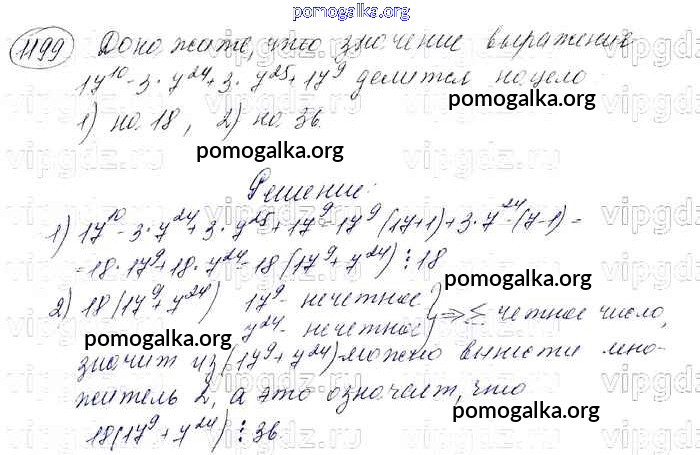 pomogalka.org
1199 Докажите, что значение выражения
17^10 - 3 · 7^24 + 3 · 7^25 + 17^9 делится нацело:
pomogalka.org
1) на 18, 2) на 36.
pomogalka.org
vipgdz.ru
Решение:
1) 17^10 - 3 · 7^24 + 3 · 7^25 + 17^9 = 17^9 (17+1) + 3 · 7^24 · (7-1) =
= 18 · 17^9 + 18 · 7^24 = 18 (17^9 + 7^24) ⋮ 18
pomogalka.org
2) 18 (17^9 + 7^24) 17^9 - нечетное
7^24 - нечетное } ⇒ Σ четное число,
pomogalka.org
значит из (17^9 + 7^24) можно вынести мно-
житель 2, а это означает, что
pomogalka.org
18 (17^9 + 7^24) ⋮ 36.
pomogalka.org